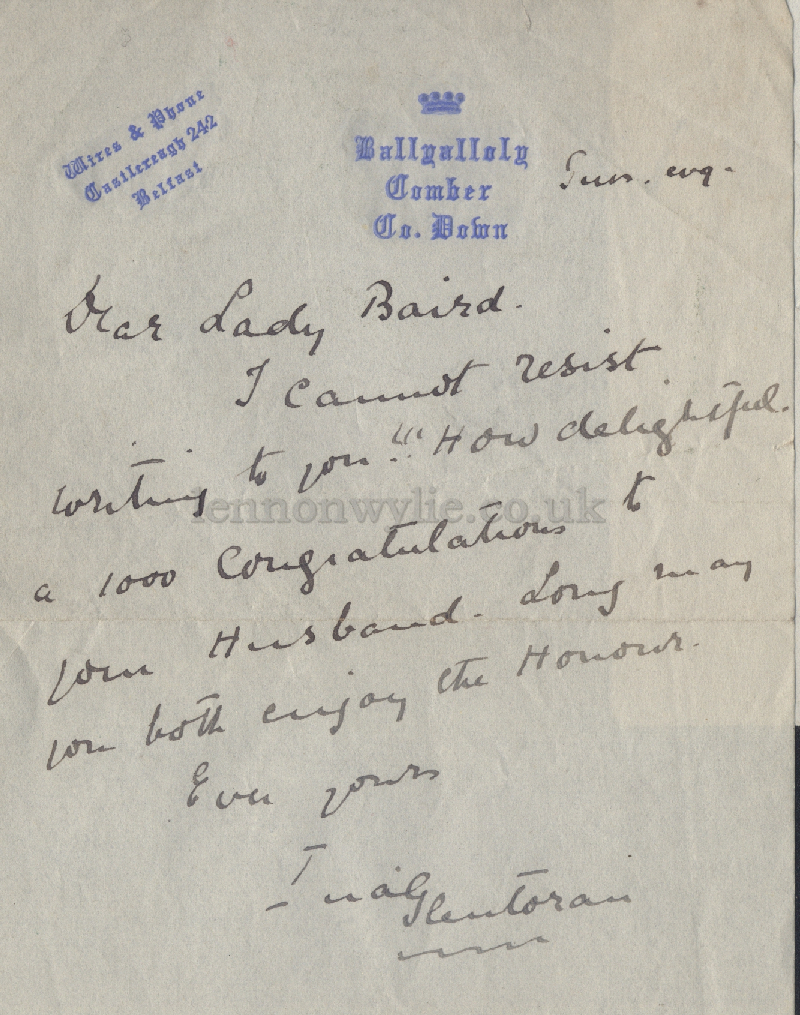 Wires & Phone
Castlereagh 242
Belfast
Ballyalloly
Comber
Co. Down
Sun. evg.
Dear Lady Baird.
I cannot resist
writing to you!!! How delightful.
lennonwylie.co.uk
a 1000 Congratulations to
your Husband. Long may
you both enjoy the Honour.
Ever yours
Ina Glentoran